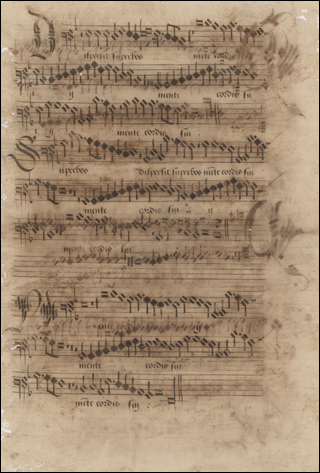 Dispersit superbos mente cordis
ij mente cordis sui
ij mente cordis sui
Superbos dispersit superbos mēte cordis sui
mente cordis sui ij
mente cordis sui
Mente cordis ij
mente cordis sui
mēte cordis sui